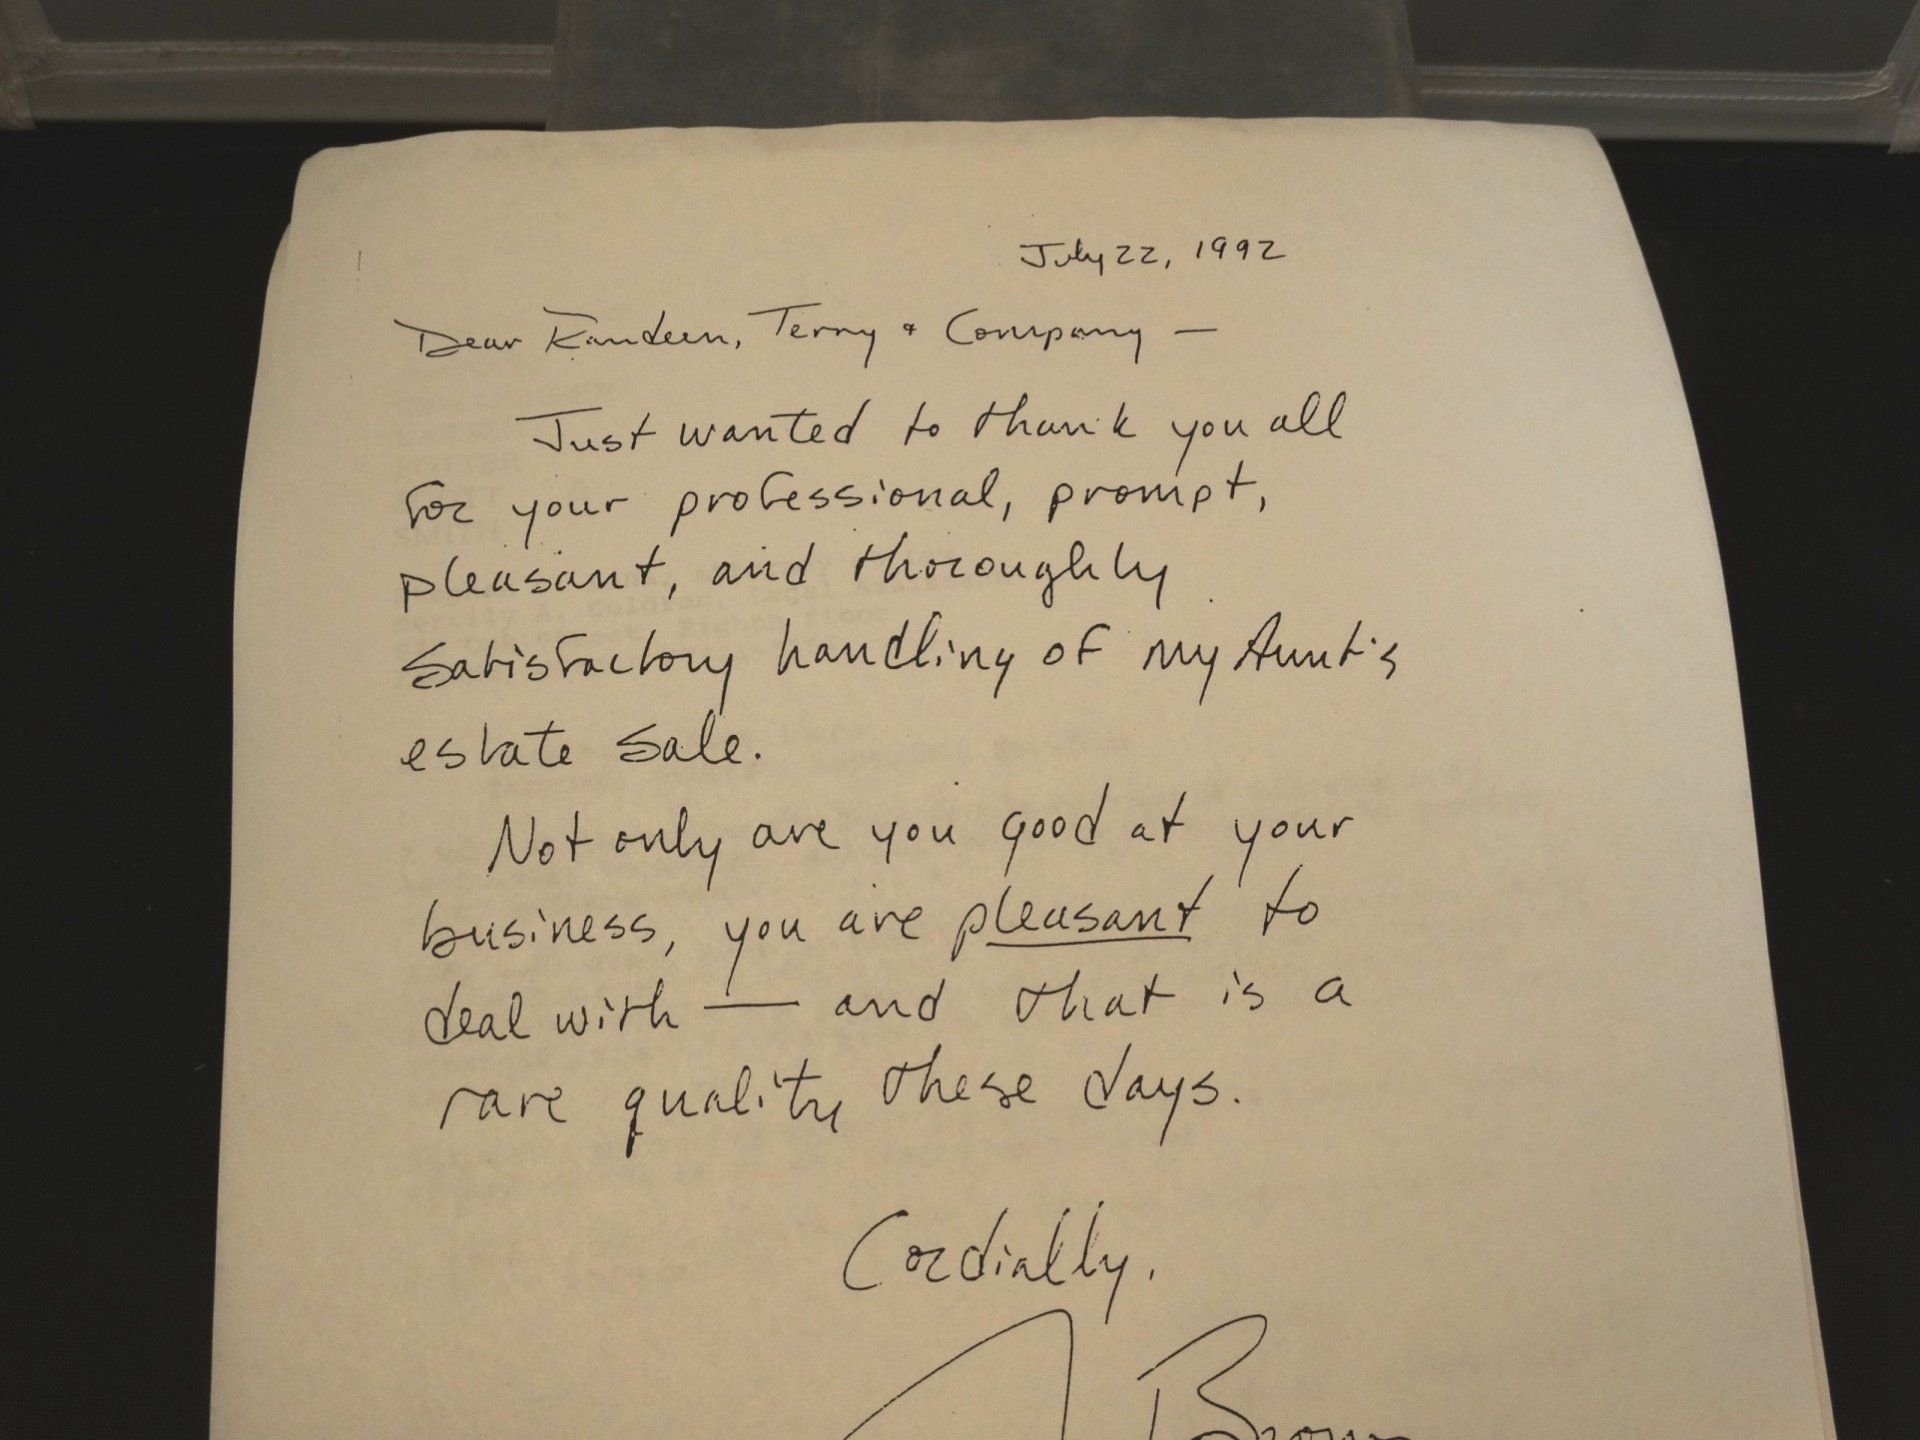 July 22, 1992
Dear Kandeen, Terry & Company —
Just wanted to thank you all
for your professional, prompt,
pleasant, and thoroughly
satisfactory handling of my Aunt's
estate sale.
Not only are you good at your
business, you are pleasant to
deal with — and that is a
rare quality these days.
Cordially,
Brown